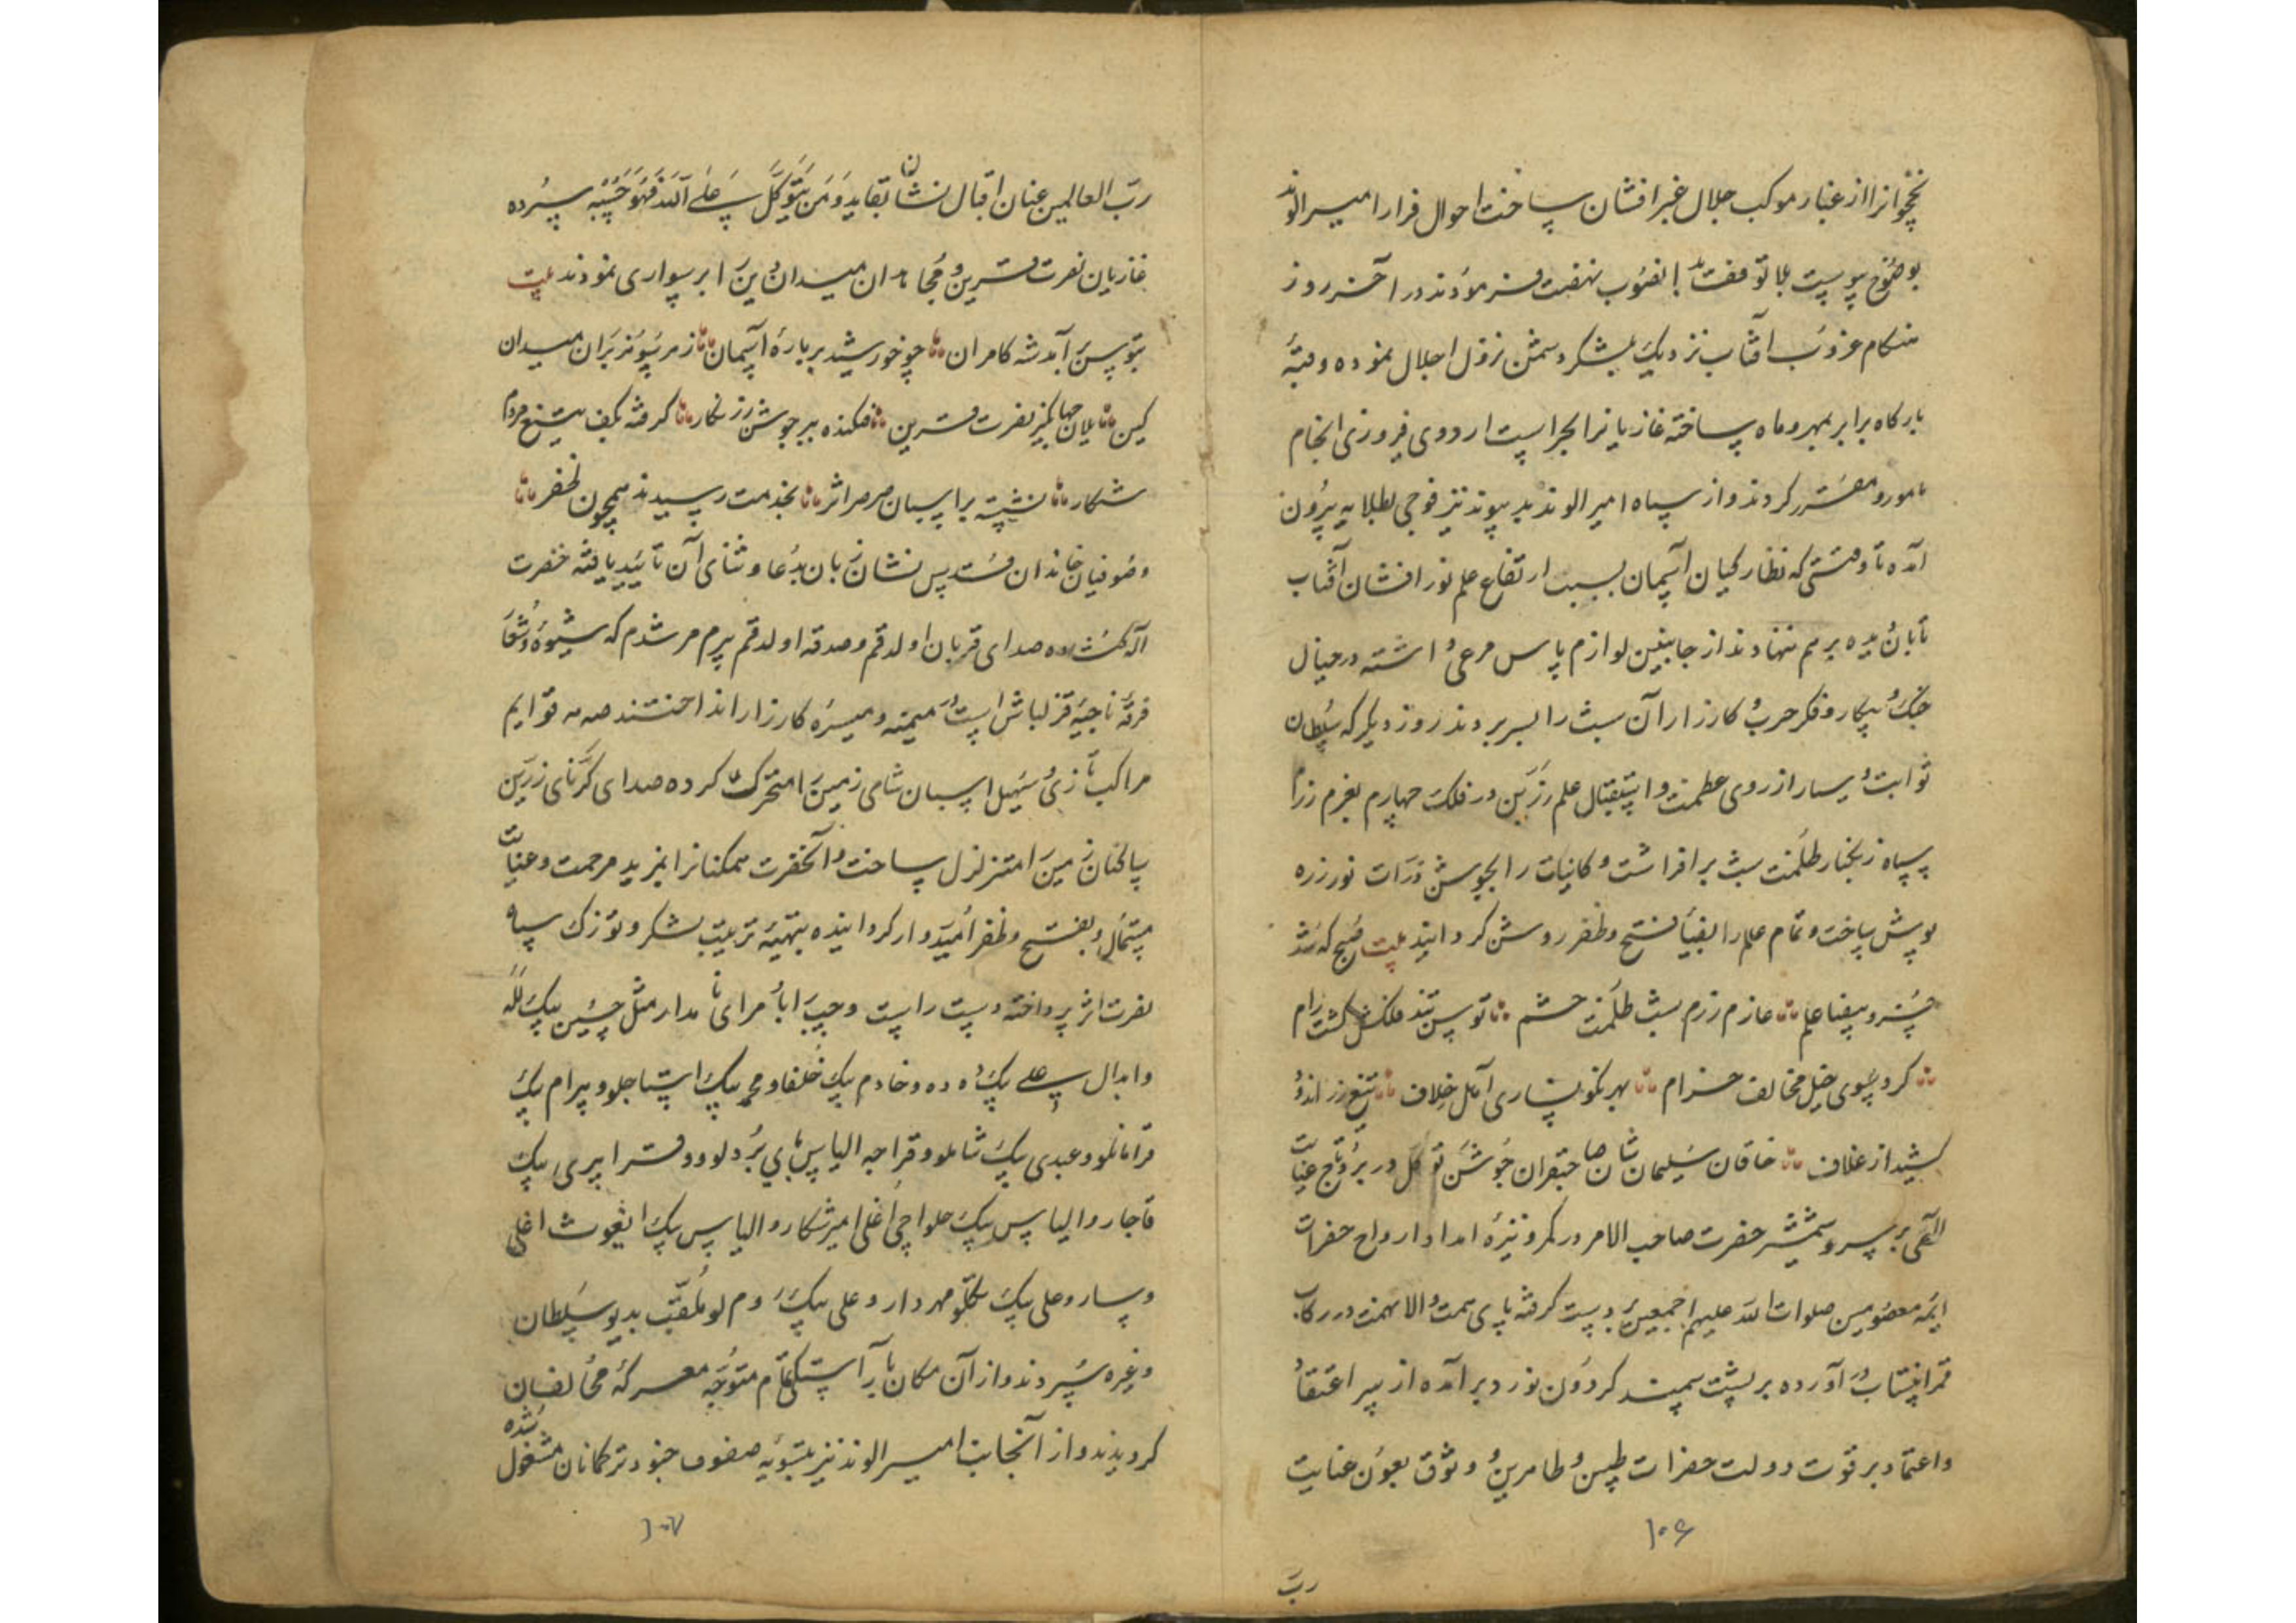 نخجوانرا از غبار موکب جلال عنبر افشان ساخت احوال فرار امیر الوند
بوضوح پیوست بلا توقف بدانصوب نهضت فرمودند در آخر روز
هنکام غروب آفتاب نزدیک بلشکر دشمن نزول اجلال نموده و قبّهٔ
بارکاه برابر بمهر و ماه ساخته غازیانرا بحراست اردوی فیروزی انجام
مامور و مقرر کردند و از سپاه امیر الوند بد پیوند نیز فوجی بطلایه بیرون
آمده تا وقتی که نظارکیان آسمان بسبب ارتفاع علم نور افشان آفتاب
تابان دیده بر هم ننهادند از جانبین لوازم پاس مرعی داشته در خیال
جنک و پیکار و فکر حرب و کارزار آن شب را بسر بردند روز دیکر که سلطان
ثوابت و سیار از روی عظمت و استقبال علم زرین در فلک چهارم بعزم رزم
سپاه زنکبار ظلمت شب بر افراشت و کاینات را بجوشن ذرات نور زره
پوش ساخت و تمام علم را بضیاء فتح و ظفر روشن کردانید بیت صبح که شد
خسرو بیضا علم عازم رزم شب ظلمت حشم توسن تند فلکش کشت رام
کرد بسوی خیل مخالف خرام بهر نکونساری اهل خلاف تیغ زر اندود
کشید از غلاف خاقان سلیمان شان صاحبقران جوشن توکل در بر و تاج عنایت
الهی بر سر و شمشیر حضرت صاحب الامر در کمر و نیزهٔ امداد ارواح حضرات
ایمه معصومین صلوات الله علیهم اجمعین بدست کرفته پای همت والا نهمت در رکاب
قمر انتساب در آورده بر پشت سمند کردون نورد بر آمده از سر اعتقاد
واعتماد بر قوت دولت حضرات طیبین و طاهرین و وثوق بعون عنایت
۱۰۶
رب
ربّ العالمین عنان اقبال نشان بقاید وَمَن یَتَوَکَّل عَلَی اللّهِ فَهُوَ حَسْبُهُ سپرده
غازیان نصرت قرین و مجاهدان میدان دین را بر سواری نمودند بیت
بتوسن بر آمد شه کامران چو خورشید بر بارهٔ آسمان ز هر سو هزبران میدان
کین یلان جهانکیر نصرت قرین فکنده ببر جوشن زرنکار کرفته بکف تیغ مردم
شکار نشسته بر اسبان صرصر اثر بخدمت رسیدند همچون ظفر
و صوفیان خاندان قدس نشان زبان بدعا و ثنای آن تایید یافته حضرت
اله کشوده صدای قربان اولدقم و صدقه اولدقم پیرم مرشدم که شیوهٔ و شعار
فرقهٔ ناجیهٔ قزلباش است در میمنه و میسرهٔ کارزار انداختند صدمه قوایم
مراکب تازی و سهیل اسبان شامی زمین را متحرک کرده صدای کرنای زرین
ساکنان زمین را متزلزل ساخت و آنحضرت همکنانرا بمزید مرحمت و عنایت
مستمال و بفتح و ظفر امیدوار کردانیده بتهیهٔ ترتیب لشکر و توزک سپاه
نصرت اثر پرداخته دست راست و چپ را بامرای نامدار مثل حسین بیک لله
و ابدال علی بیک دده و خادم بیک خلفا و محمد بیک استاجلو و بیرام بیک
قرامانلو و عبدی بیک شاملو و قراجه الیاس بای بردلو و قرا پیری بیک
قاجار و الیاس بیک حلواجی اغلی امیر شکار و الیاس بیک ایغوت اغلی
و سارو علی بیک تکلو مهردار و علی بیک روملو ملقب بدیو سلطان
و غیره سپردند و از آن مکان بآراستکی تمام متوجه معرکهٔ مخالفان
کردیدند و از آنجانب امیر الوند نیز بتسویه صفوف جنود ترکمانان مشغول شده
۱۰۷